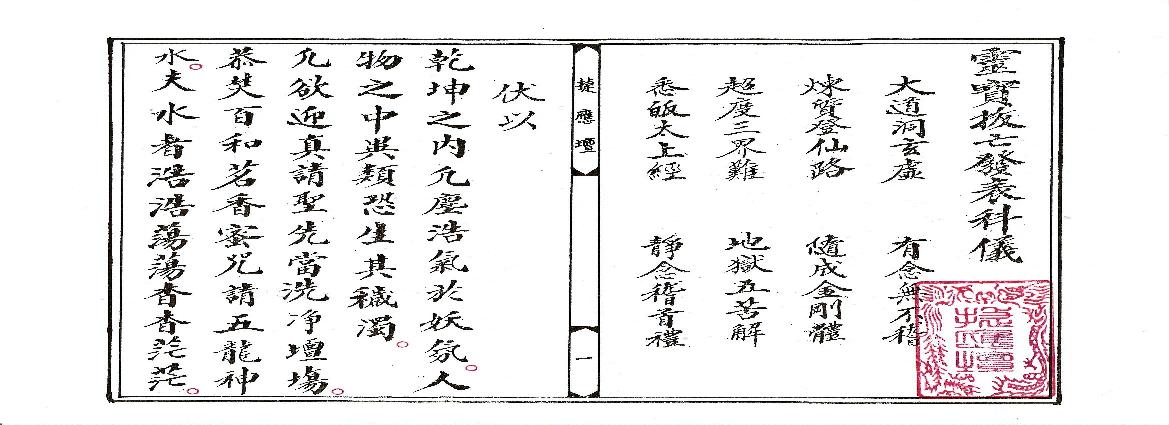 靈寶拔亡發表科儀
大道洞玄虛　有念無不稽
煉質登仙路　隨成金剛體
超度三界難　地獄五苦解
悉皈太上經　靜念稽首禮
捷應壇
一
伏以
乾坤之內凡塵浩氣於妖氛。人
物之中與類恐生其穢濁。
凡欲迎真請聖先當洗净壇場。
恭焚百和茗香蜜咒請五龍神
水。夫水者浩浩蕩蕩杳杳茫茫。
捷應壇